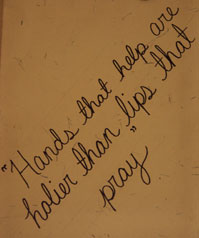 "Hands that help are
holier than lips that
pray"